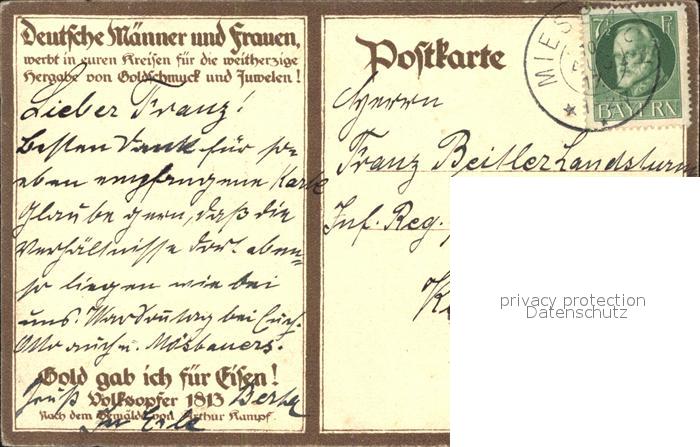 Deutsche Männer und Frauen,
werbt in euren Kreisen für die weitherzige
Hergabe von Goldschmuck und Juwelen!
Lieber Franz!
Besten Dank für so
eben empfangene Karte
Glaube gern, daß die
Verhältnisse dort eben=
so liegen wie bei
uns. War Sonntag bei Euch.
Otto auch u. Mösbauers.
Gold gab ich für Eisen!
Gruß Berta
Volksopfer 1813
In Eile
Nach dem Gemälde von Arthur Kampf.
Postkarte
MIES
7½ P
BAYERN
Herrn
Franz Beitler Landsturm
Inf. Reg.
privacy protection
Datenschutz